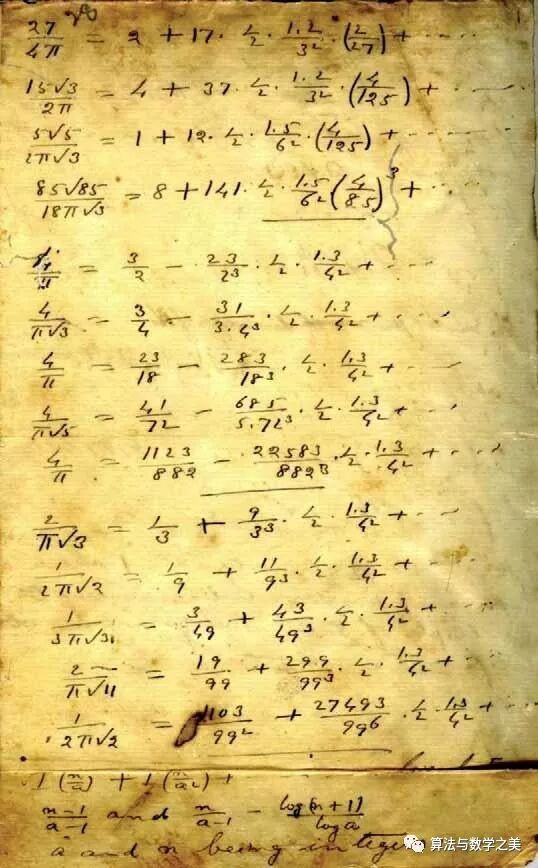 27/4π = 2 + 17 · 1/2 · 1.2/3² · (2/27) + ·····
15√3/2π = 4 + 37 · 1/2 · 1.2/3² · (4/125) + ·····
5√5/2π√3 = 1 + 12 · 1/2 · 1.5/6² · (4/125) + ·····
85√85/18π√3 = 8 + 141 · 1/2 · 1.5/6² (4/85)³ + ···
4/π = 3/2 − 23/2³ · 1/2 · 1.3/4² + ····
4/π√3 = 3/4 − 31/3.4³ · 1/2 · 1.3/4² + ····
4/π = 23/18 − 283/18³ · 1/2 · 1.3/4² + ····
4/π√5 = 41/72 − 685/5.72³ · 1/2 · 1.3/4² + ····
4/π = 1123/882 − 22583/882³ · 1/2 · 1.3/4² + ····
2/π√3 = 1/3 + 9/3³ · 1/2 · 1.3/4² + ···
1/2π√2 = 1/9 + 11/9³ · 1/2 · 1.3/4² + ····
1/3π√3 = 3/49 + 43/49³ · 1/2 · 1.3/4² + ····
2/π√11 = 19/99 + 299/99³ · 1/2 · 1.3/4² + ···
1/2π√2 = 1103/99² + 27493/99⁶ · 1/2 · 1.3/4² + ···
1(n/a) + 1(n/a²) +
n−1/a−1 and n/a−1 − log(n+1)/log a
a and n being integers
算法与数学之美